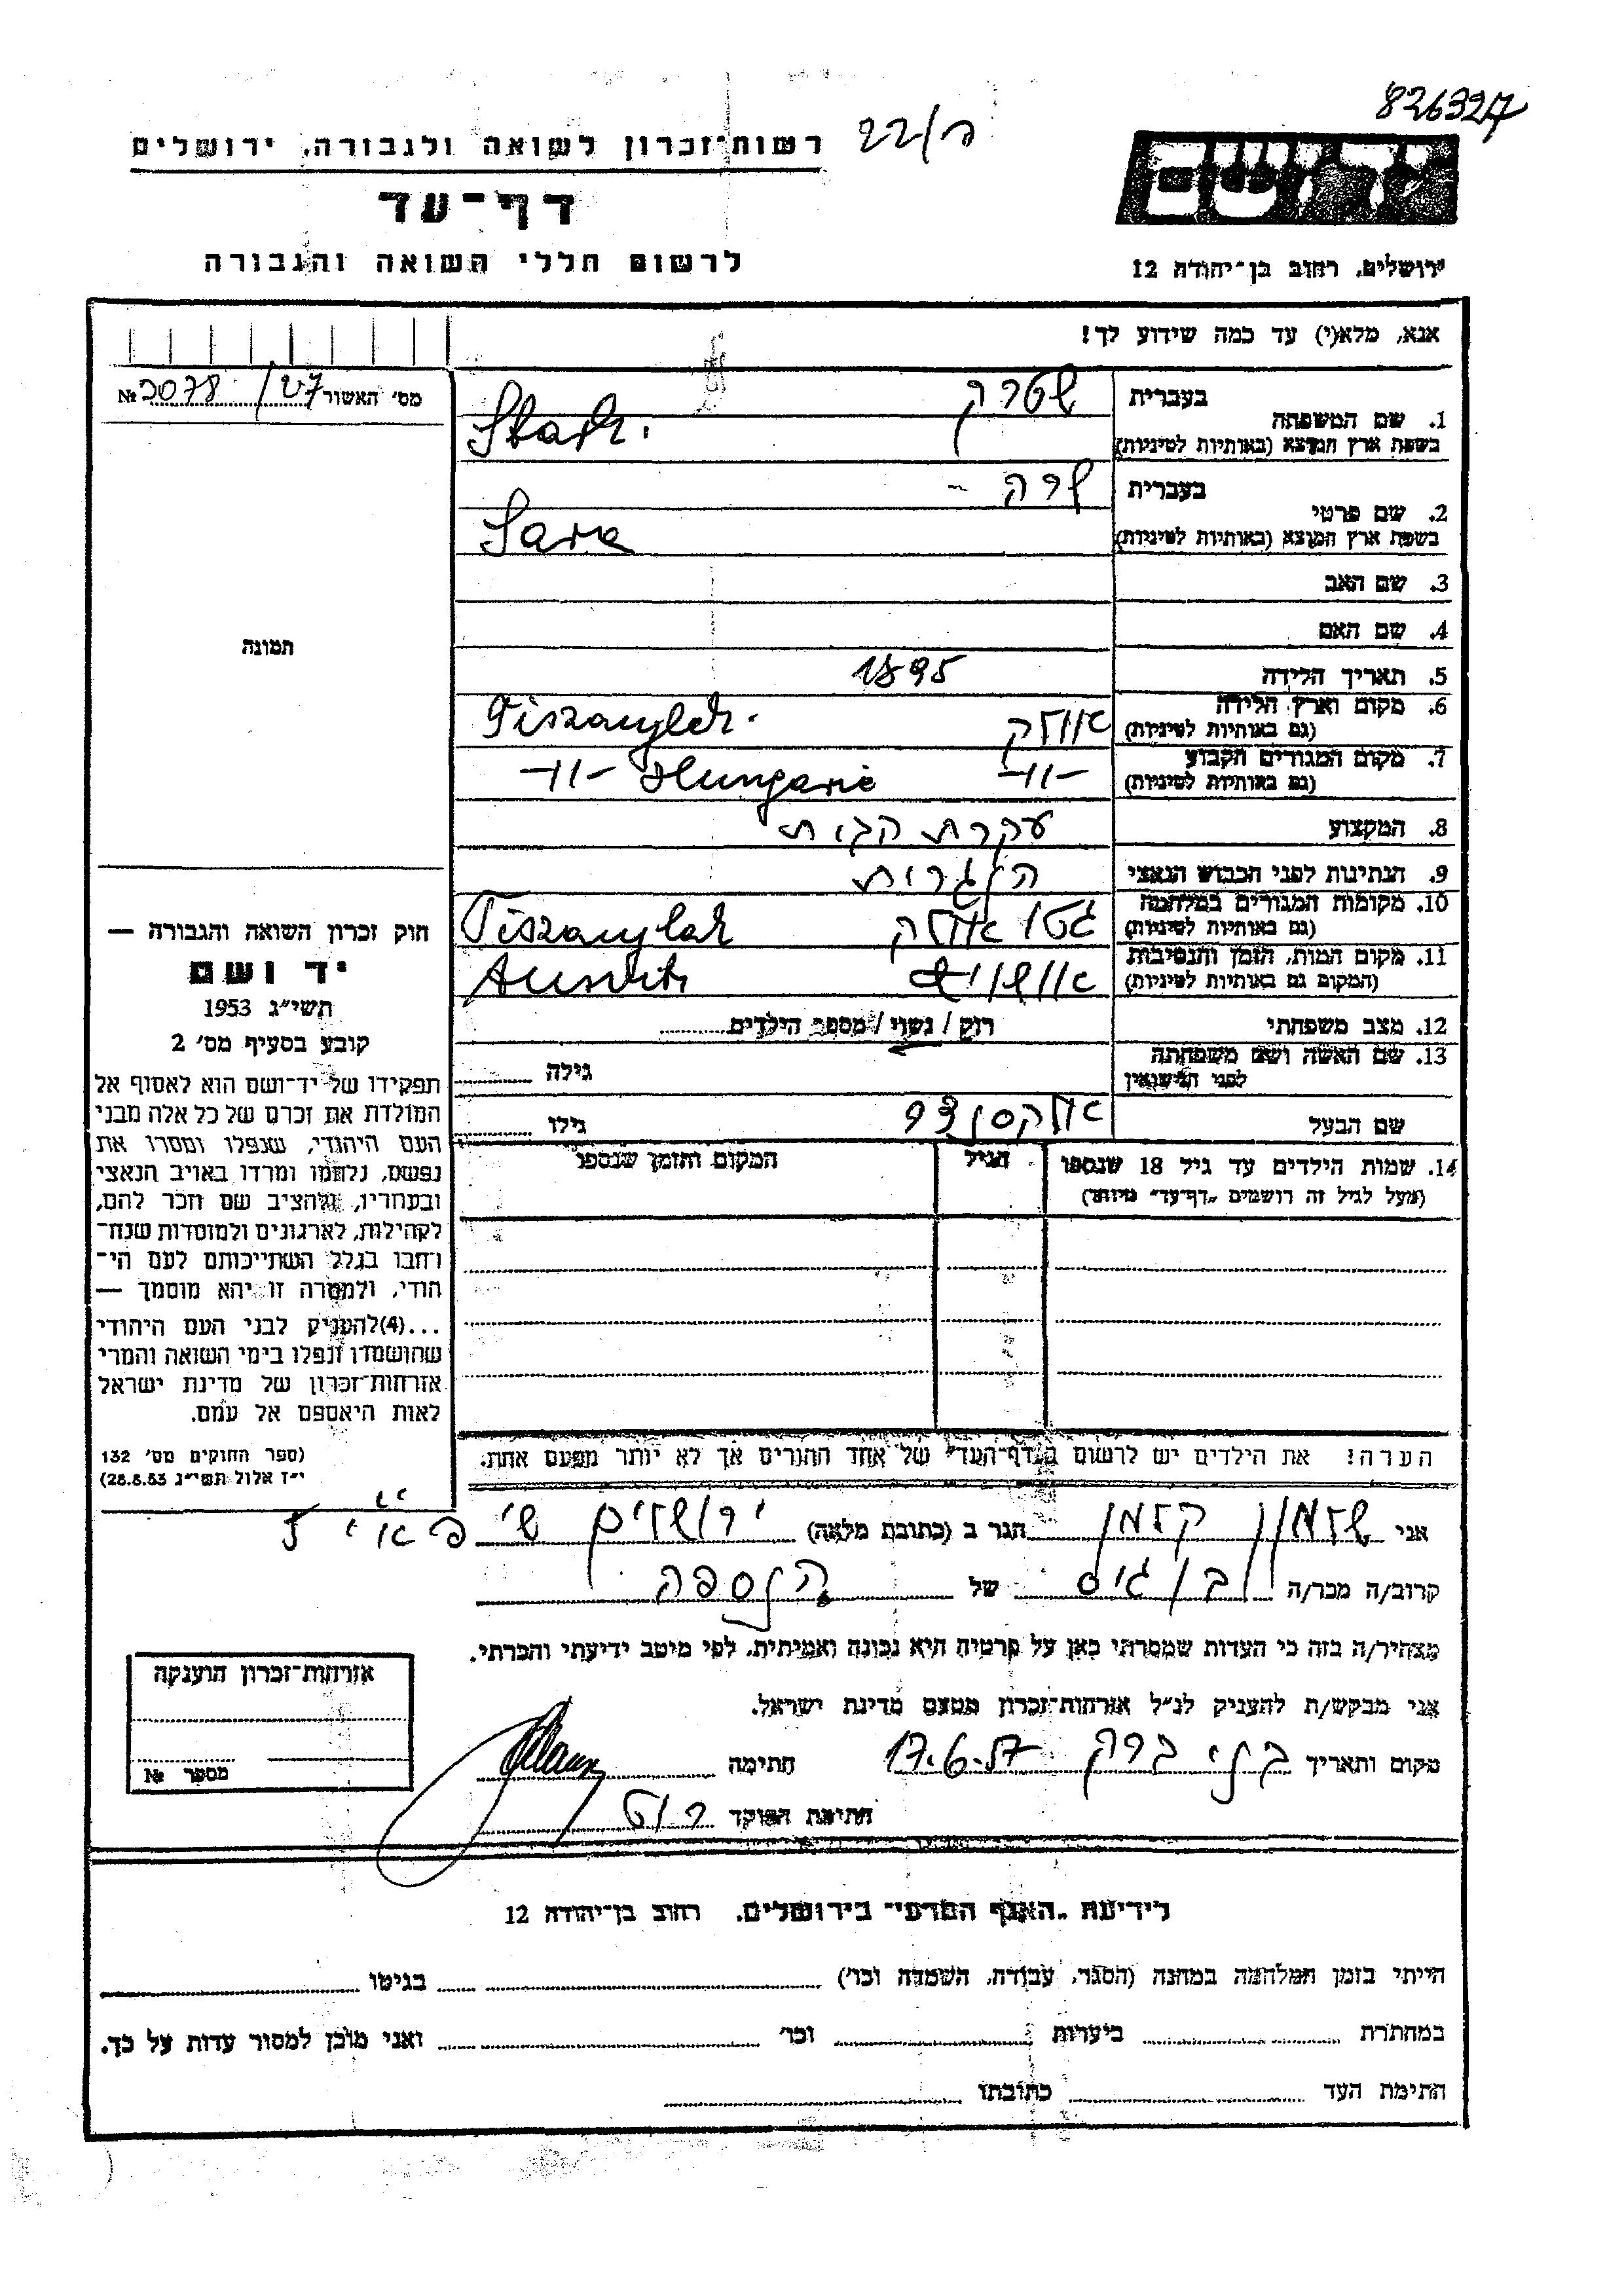 826327
22/ר
רשות־זכרון לשואה ולגבורה, ירושלים
דף־עד
לרשום חללי השואה והגבורה
יד ושם
ירושלים, רחוב בן־יהודה 12
אנא, מלא(י) עד כמה שידוע לך!
מס׳ האשור 27/ 2078 №
1. שם המשפחה
בעברית שטרק
בשפת ארץ המוצא (באותיות לטיניות) Stark.
2. שם פרטי
בעברית שרה -
בשפת ארץ המוצא (באותיות לטיניות) Sara
3. שם האב
4. שם האם
5. תאריך הלידה 1895
6. מקום וארץ הלידה
(גם באותיות לטיניות) Tiszaujlak.
7. מקום המגורים הקבוע
(גם באותיות לטיניות) -11- -11- Hungarie
8. המקצוע עקרת הבית
9. הנתינות לפני הכבוש הנאצי הונגרית
10. מקומות המגורים במלחמה
(גם באותיות לטיניות) גטו Tiszaujlak
11. מקום המות, הזמן והנסיבות
(המקום גם באותיות לטיניות) אושויץ Auswits
12. מצב משפחתי רווק / נשוי / מספר הילדים
13. שם האשה ושם משפחתה
לפני הנישואין גילה
שם הבעל אלקסנדר גילו
14. שמות הילדים עד גיל 18 שנספו הגיל המקום והזמן שנספו
(מעל לגיל זה רושמים „דף־עד״ מיוחד)
הערה! את הילדים יש לרשום ב„דף־העד״ של אחד ההורים אך לא יותר מפעם אחת.
תמונה
חוק זכרון השואה והגבורה —
יד ושם
תשי״ג 1953
קובע בסעיף מס׳ 2
תפקידו של יד־ושם הוא לאסוף אל
המולדת את זכרם של כל אלה מבני
העם היהודי, שנפלו ומסרו את
נפשם, נלחמו ומרדו באויב הנאצי
ובעוזריו, ולהציב שם וזכר להם,
לקהילות, לארגונים ולמוסדות שנח־
רבו בגלל השתייכותם לעם הי־
הודי, ולמטרה זו יהא מוסמך —
...(4) להעניק לבני העם היהודי
שהושמדו ונפלו בימי השואה והמרי
אזרחות־זכרון של מדינת ישראל
לאות היאספם אל עמם.
(ספר החוקים מס׳ 132
י״ז אלול תשי״ג 28.8.53)
אני קלמן הגר ב (כתובת מלאה) ירושלים
קרוב/ה מכר/ה בן גיס של הנספה
מצהיר/ה בזה כי העדות שמסרתי כאן על פרטיה היא נכונה ואמיתית, לפי מיטב ידיעתי והכרתי.
אני מבקש/ת להעניק לנ״ל אזרחות־זכרון מטעם מדינת ישראל.
מקום ותאריך בני ברק 17.6.57 חתימה
חתימת הפוקד
אזרחות־זכרון הוענקה
מספר №
לידיעת „האגף המדעי״ בירושלים, רחוב בן־יהודה 12
הייתי בזמן המלחמה במחנה (הסגר, עבודה, השמדה וכו׳) בגיטו
במחתרת ביערות וכו׳ ואני מוכן למסור עדות על כך.
חתימת העד כתובתו